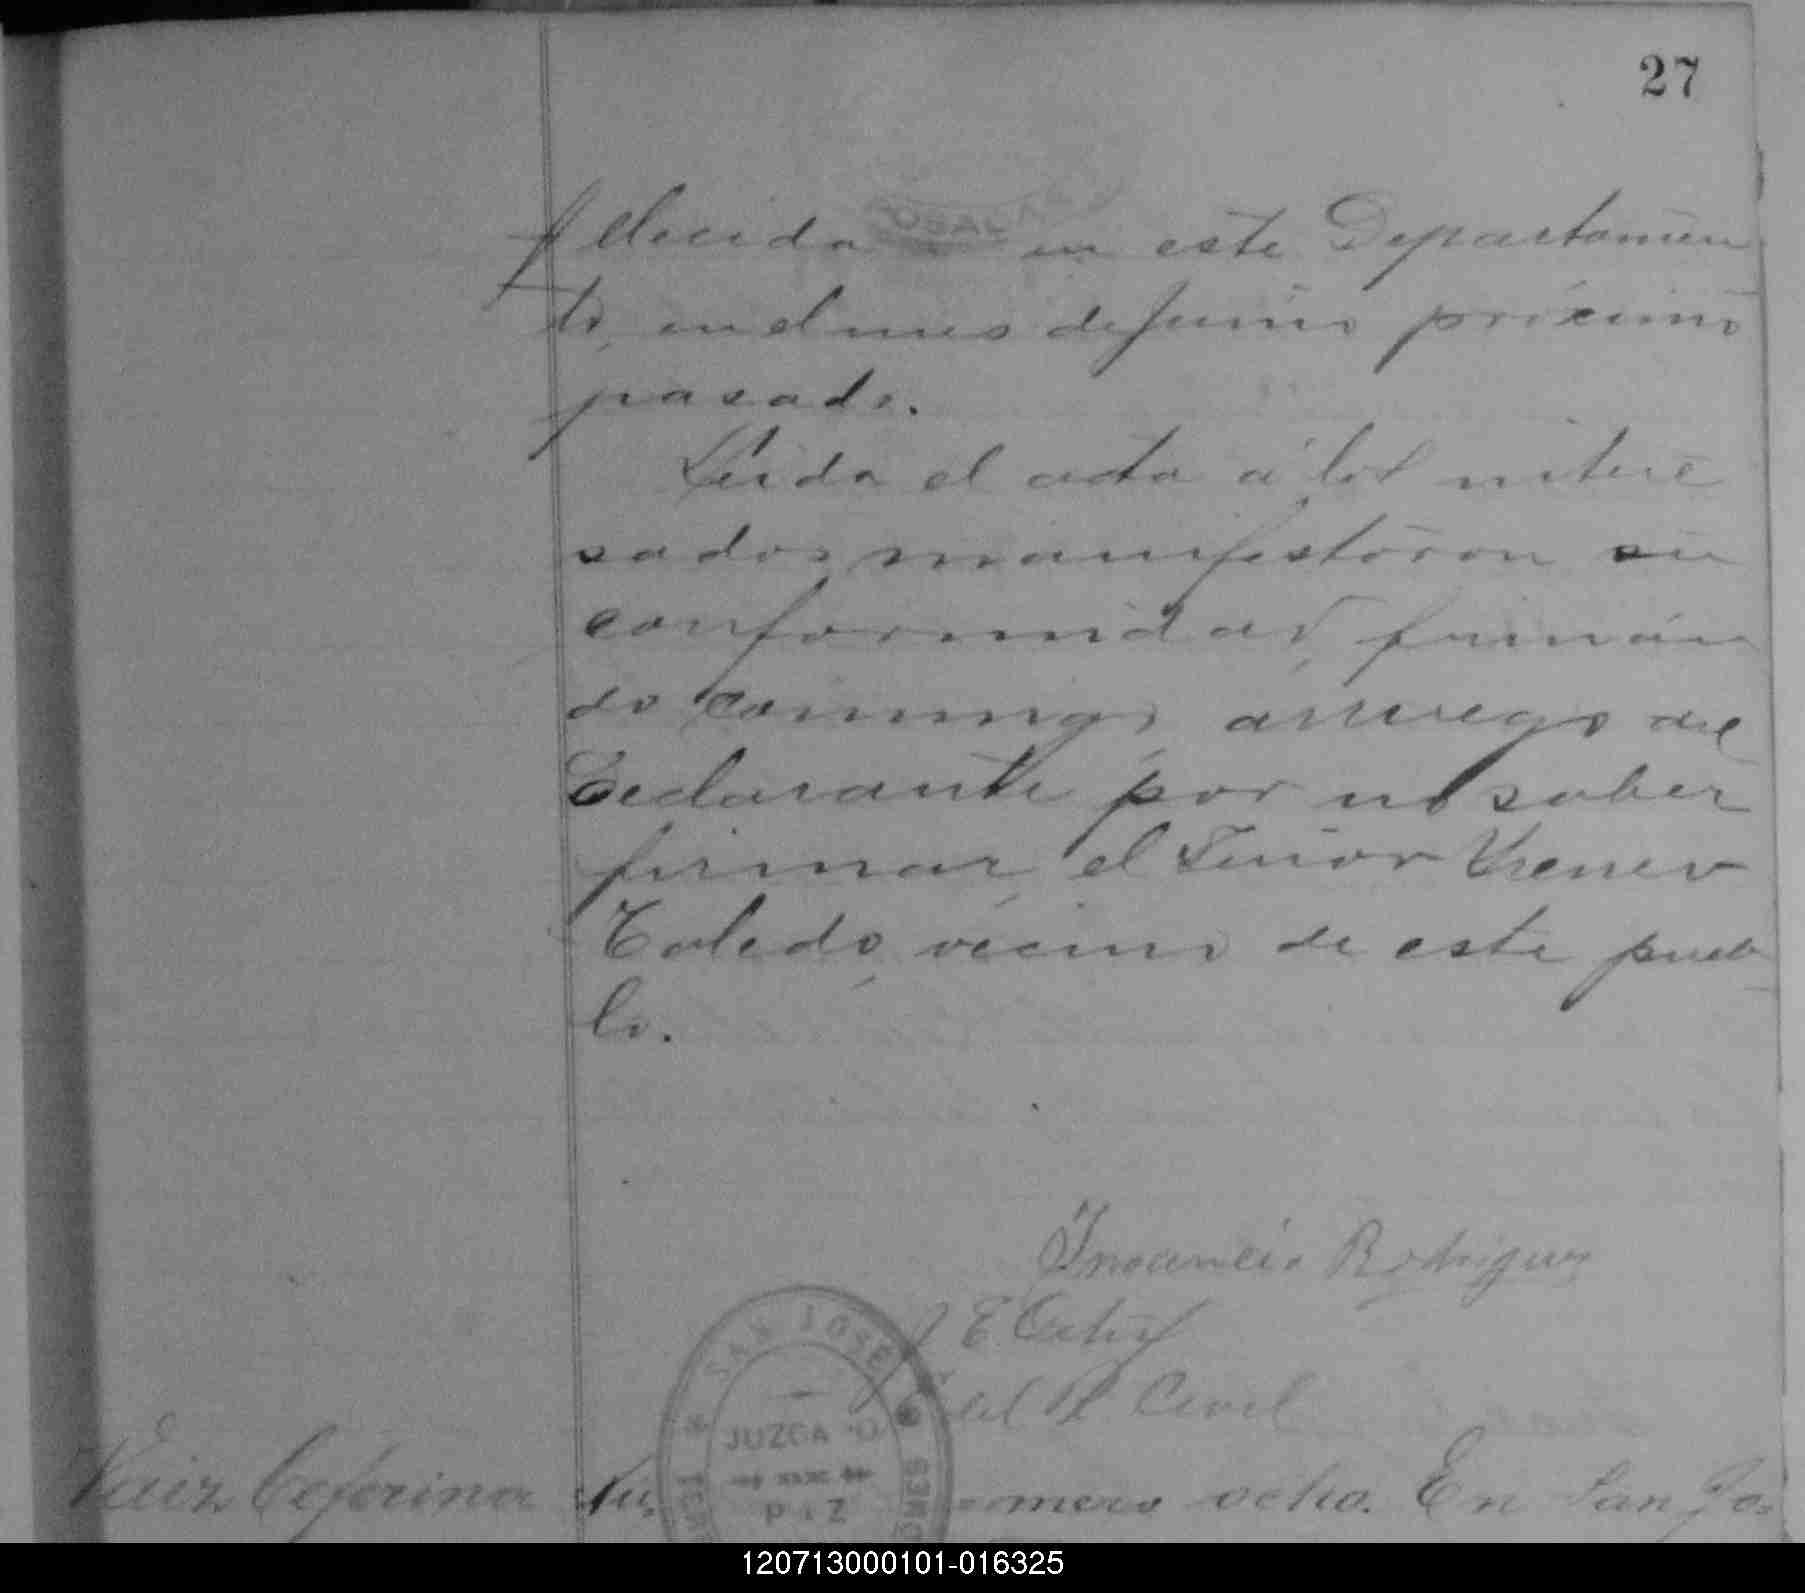 27
fallecida en este Departamen
to, en el mes de junio próximo
pasado.
Leida el acta á los intere
sados manifestaron su
conformidad, firmán
do conmigo, a ruego del
declarante por no saber
firmar, el Señor
Toledo, vecino de este pueb
lo.
Inocencio Rodriguez
del R. Civil
SAN JOSE
JUZGADO
Ceferina Nú-
-mero ocho. En San Jo-
120713000101-016325